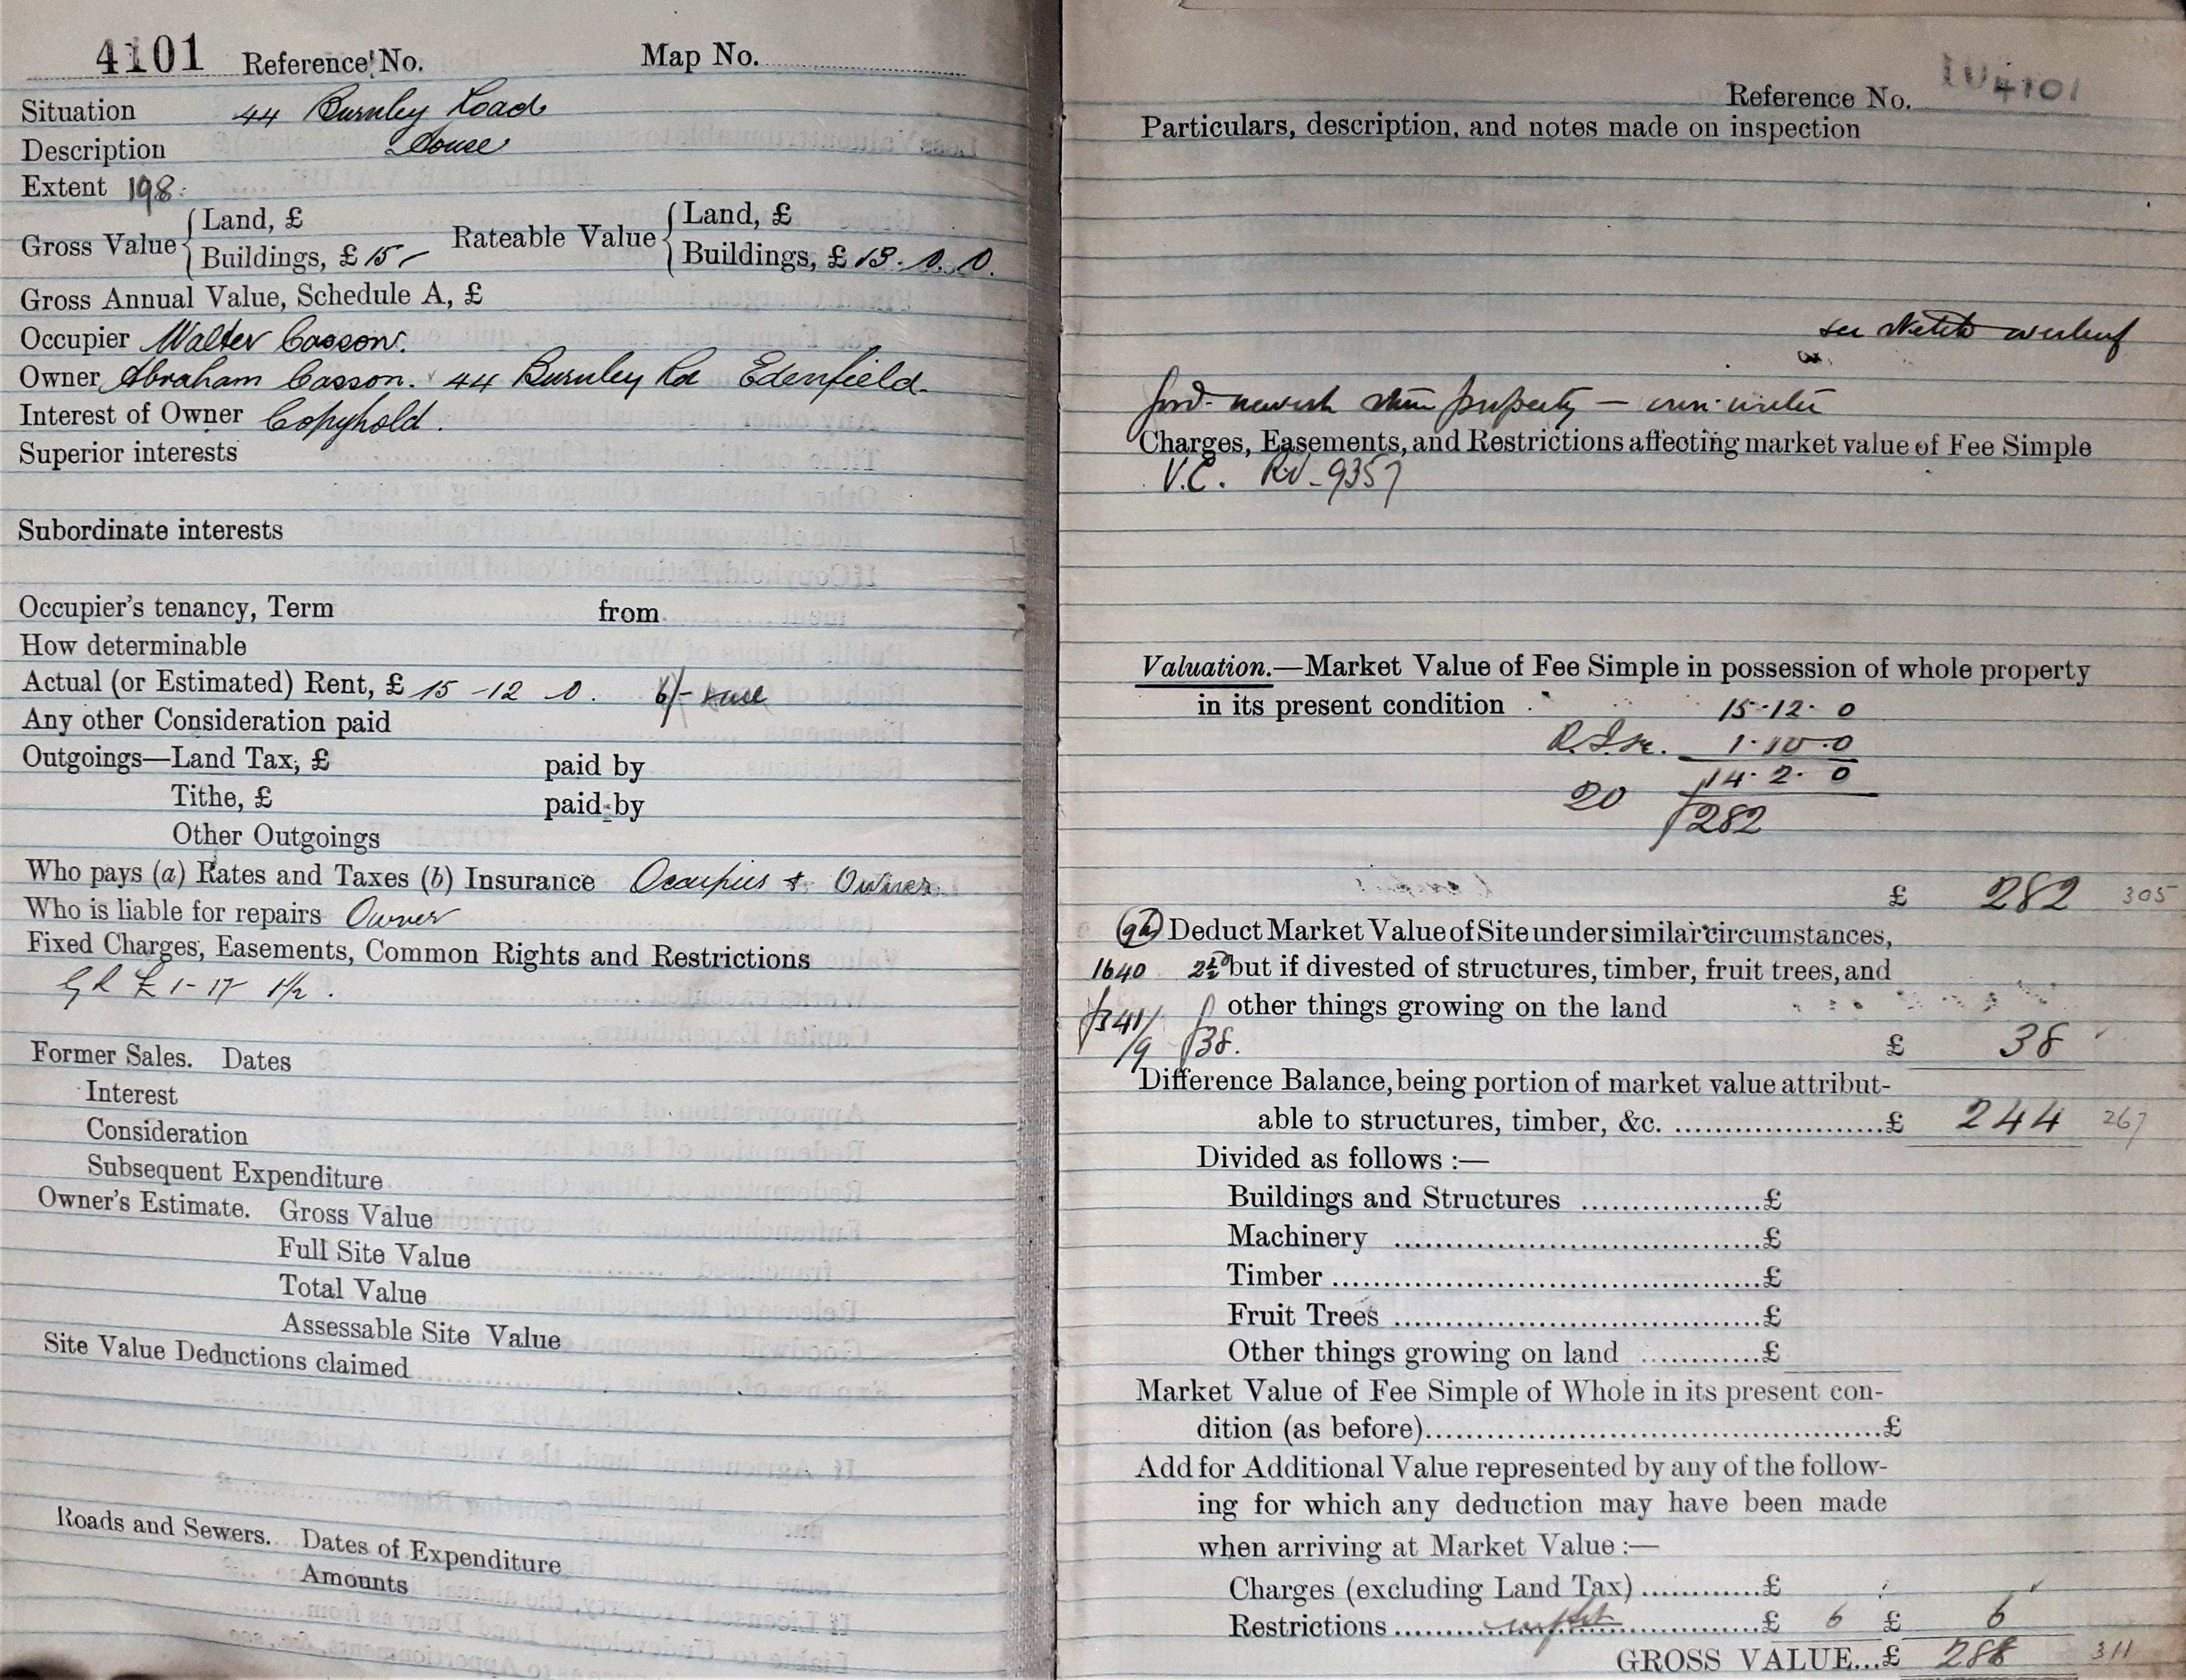 4101 Reference No. Map No.
Situation 44 Burnley Road
Description House
Extent 198.
Gross Value { Land, £ Rateable Value { Land, £
Buildings, £ 15 - Buildings, £ 13. 0. 0.
Gross Annual Value, Schedule A, £
Occupier Walter Casson.
Owner Abraham Casson. 44 Burnley Rd Edenfield.
Interest of Owner Copyhold.
Superior interests
Subordinate interests
Occupier's tenancy, Term from
How determinable
Actual (or Estimated) Rent, £ 15 - 12 0. 6/-
Any other Consideration paid
Outgoings—Land Tax, £ paid by
Tithe, £ paid by
Other Outgoings
Who pays (a) Rates and Taxes (b) Insurance Occupier & Owner
Who is liable for repairs Owner
Fixed Charges, Easements, Common Rights and Restrictions
G R £ 1-17 1½.
Former Sales. Dates
Interest
Consideration
Subsequent Expenditure
Owner's Estimate. Gross Value
Full Site Value
Total Value
Assessable Site Value
Site Value Deductions claimed
Roads and Sewers. Dates of Expenditure
Amounts
Reference No. 4101
Particulars, description, and notes made on inspection
see sketch overleaf
Good newish stone property
Charges, Easements, and Restrictions affecting market value of Fee Simple
V.C. 9357
Valuation.—Market Value of Fee Simple in possession of whole property
in its present condition
15 · 12 · 0
1 · 10 · 0
14 · 2 · 0
20 £282
£ 282 305
Deduct Market Value of Site under similar circumstances,
1640 but if divested of structures, timber, fruit trees, and
£341/9 £38. other things growing on the land
£ 38
Difference Balance, being portion of market value attribut-
able to structures, timber, &c. £ 244 267
Divided as follows :—
Buildings and Structures £
Machinery £
Timber £
Fruit Trees £
Other things growing on land £
Market Value of Fee Simple of Whole in its present con-
dition (as before) £
Add for Additional Value represented by any of the follow-
ing for which any deduction may have been made
when arriving at Market Value :—
Charges (excluding Land Tax) £
Restrictions £ 6 £ 6
GROSS VALUE...£ 288 311